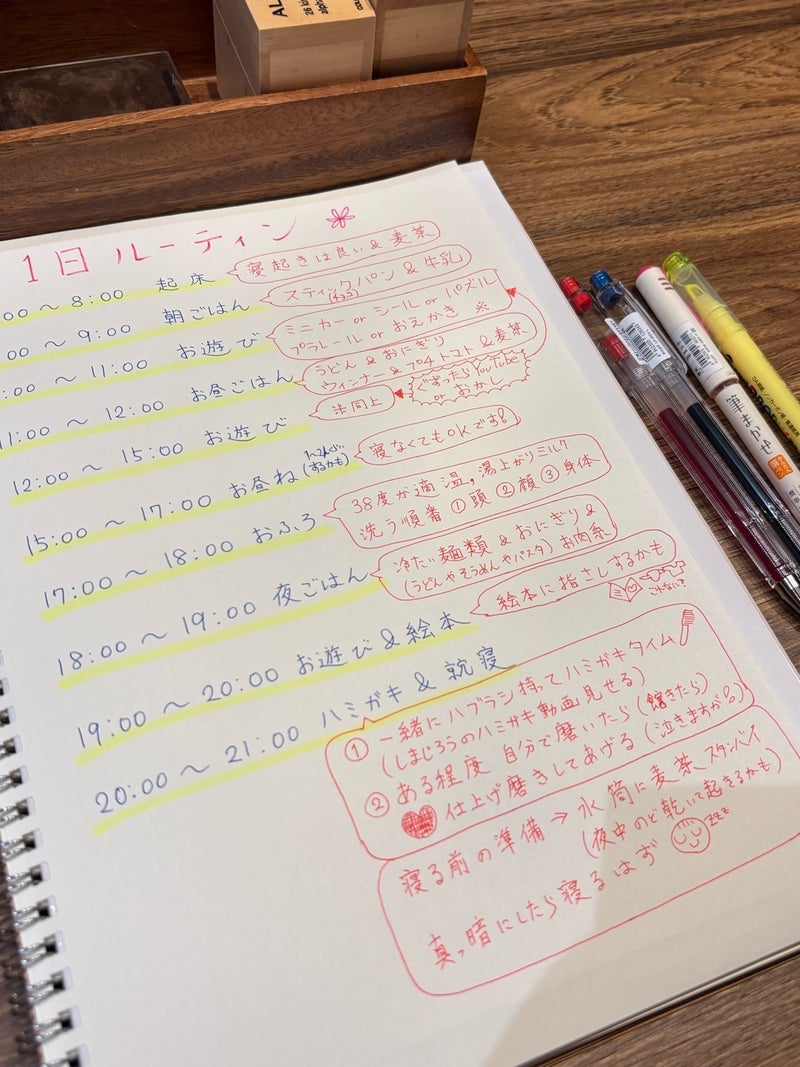 AL
1日ルーティン
00 〜 8:00 起床
寝起きは良い & 麦茶
00 〜 9:00 朝ごはん
スティックパン & 牛乳
(チョコ)
00 〜 11:00 お遊び
ミニカー or シール or パズル
プラレール or おえかき ※
11:00 〜 12:00 お昼ごはん
うどん & おにぎり
ウィンナー & プチトマト & 麦茶
ぐずったらYouTube
or おかし
12:00 〜 15:00 お遊び
※同上
15:00 〜 17:00 お昼ね
(するかも)
寝なくてもOKです!
17:00 〜 18:00 おふろ
38度が適温、湯上がりミルク
洗う順番 ①頭 ②顔 ③身体
18:00 〜 19:00 夜ごはん
冷たい麺類 & おにぎり &
(うどんやそうめんやパスタ) お肉系
19:00 〜 20:00 お遊び & 絵本
絵本に指さしするかも
これなに?
20:00 〜 21:00 ハミガキ & 就寝
① 一緒にハブラシ持ってハミガキタイム
(しまじろうのハミガキ動画見せる)
② ある程度 自分で磨いたら (飽きたら)
仕上げ磨きしてあげる (泣きますが)
寝る前の準備 → 水筒に麦茶 スタンバイ
(夜中のど乾いて起きるかも)
zzz
真っ暗にしたら寝るはず
筆まかせ